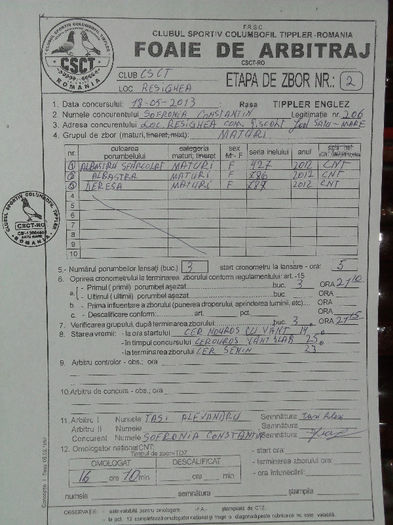 F.R.S.C
CLUBUL SPORTIV COLUMBOFIL TIPPLER -ROMANIA
FOAIE DE ARBITRAJ
CSCT-RO
CSCT
ROMANIA
CLUB CSCT
LOC. RESIGHEA
ETAPA DE ZBOR NR.: 2
1. Data concursului: 18-05-2013 Rasa TIPPLER ENGLEZ
2. Numele concurentului SOFRONIA CONSTANTIN Legitimație nr. 206
3. Adresa concurentului LOC. RESIGHEA COM. SATU-MARE
4. Grupul de zbor (maturi, tineret, mixt) MATURI
nr. culoarea porumbelului categoria maturi, tineret sex M - F seria inelului anul
1 MATURI F 427 2012 CNT
2 ALBASTRA MATURI F 2012 CNT
3 MATURI F 2012 CNT
4
5
6
7
8
9
10
CSCT-RO
ROMANIA
5.- Numărul porumbeilor lansați (buc.) 3 start cronometru la lansare - ora: 5
6. Oprirea cronometrului la terminarea zborului conform regulamentului art. -15
a. - Primul ( primii ) porumbel așezat buc. 3 ORA 21 10
- Ultimul ( ultimii ) porumbel așezat buc. ORA
b - Prima influențare a zborului (punerea droporului, aprinderea luminii, etc) ORA
c. - Descalificare conform: art. pct. ORA
7. Verificarea grupului după terminarea zborului: buc. 3 ORA 21 15
8. Starea vremii: - la ora startului CER NOUROS CU VANT 14
- în timpul concursului VANT SLAB 25
- la terminarea zborului CER SENIN 23
9. Arbitru controlor - obs.; ora
10. Arbitru de concurs - obs.; ora
11. Arbitru I Numele TASI ALEXANDRU Semnătura
Arbitru II Numele Semnătura
Concurent Numele SOFRONIA CONSTANTIN Semnătura
12. Omologator național CNT:
Timpul de zbor
OMOLOGAT DESCALIFICAT
16 ore 10 min ore min
- start ora:
- terminarea zborului ora:
- ora întunecării:
numele semnătura ștampila